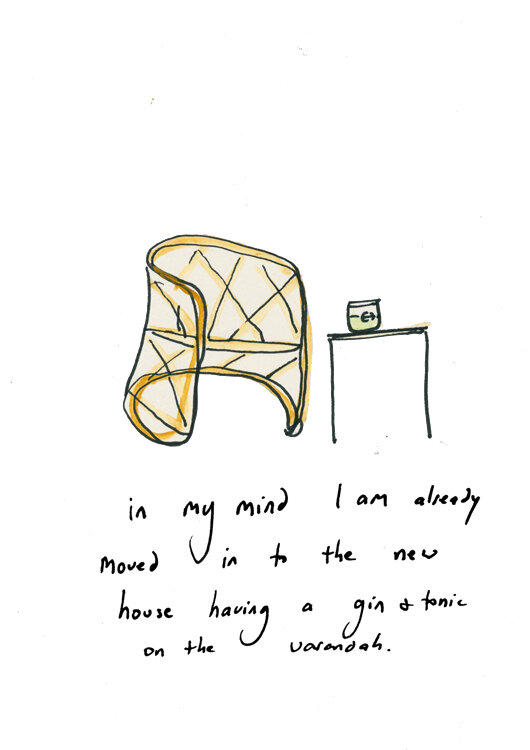 in my mind I am already
moved in to the new
house having a gin & tonic
on the varandah.